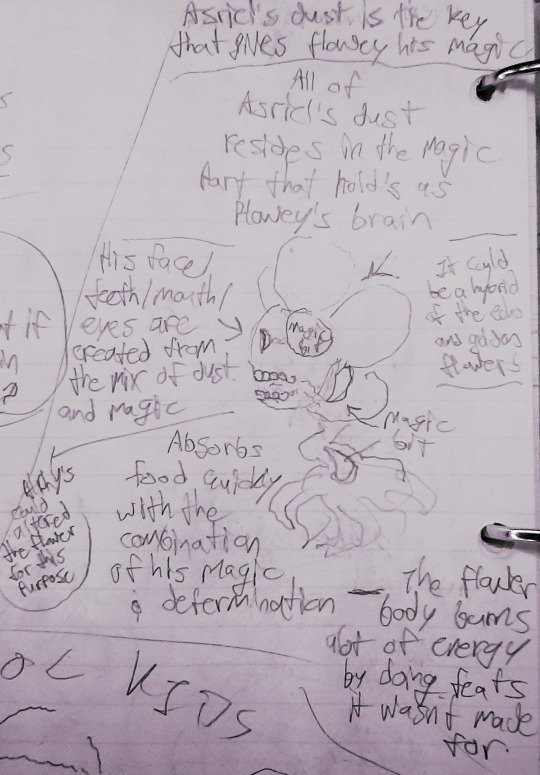 Asriel's dust is the key
that gives flowey his magic
All of
Asriel's dust
resides in the magic
Part that hold's as
Flowey's brain
His face/
teeth/mouth/
eyes are
created from
the mix of dust
and magic
Magic
bit
It could
be a hybrid
of the echo
and golden
flowers
Magic
bit
Absorbs
food quickly
with the
combination
of his magic
& determination
The flower
body burns
alot of energy
by doing feats
it wasn't made
for.
could
altered
the flower
for this
purpose
OC KIDS
s
s
if